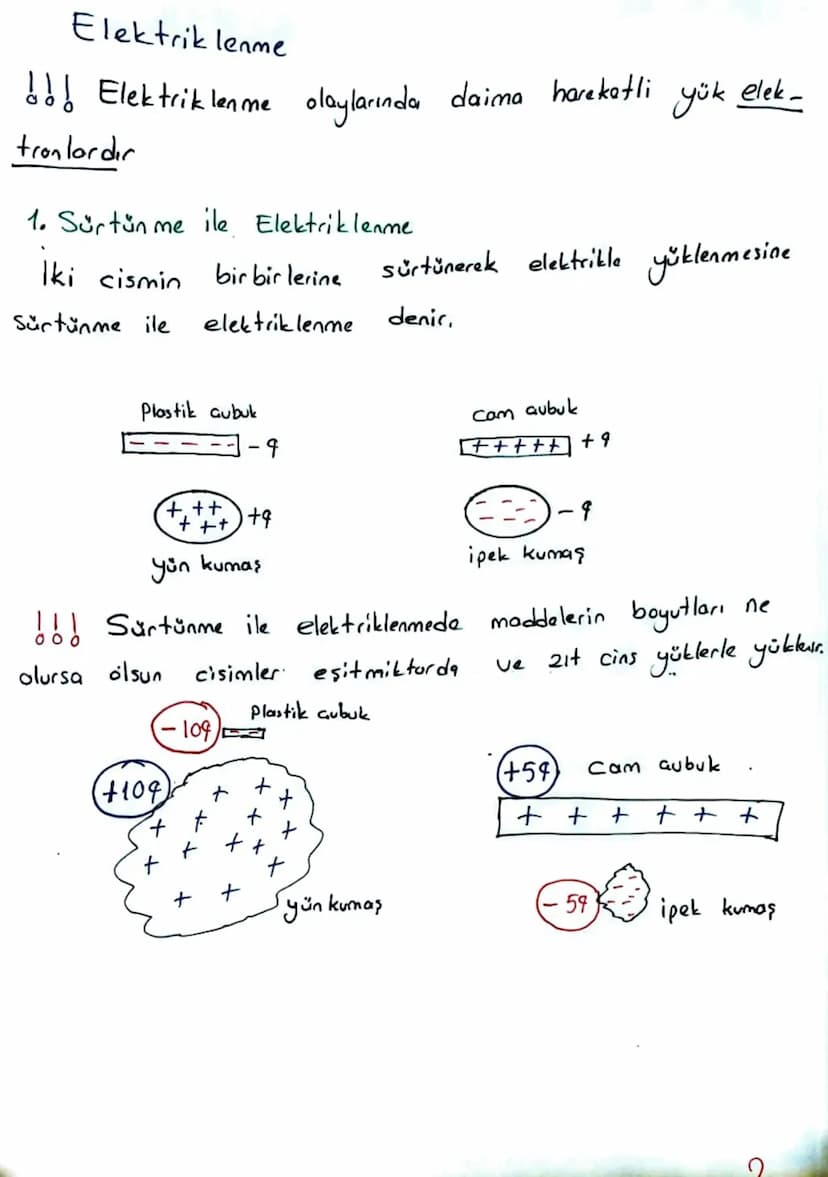 Elektriklenme
!!! Elektriklenme olaylarında daima hareketli yük elek-
tronlardır
1. Sürtünme ile Elektriklenme
İki cismin birbirlerine sürtünerek elektrikle yüklenmesine
sürtünme ile elektriklenme denir.
Plastik çubuk
Cam çubuk
- - - - - -q
+++++ +q
+++++++ +q
- - - - - - - -q
yün kumaş
ipek kumaş
!!! Sürtünme ile elektriklenmede maddelerin boyutları ne
olursa olsun cisimler eşit miktarda ve zıt cins yüklerle yüklenir.
-10q Plastik çubuk
+10q
+5q Cam çubuk
+ + + + + +
yün kumaş
-5q ipek kumaş
2